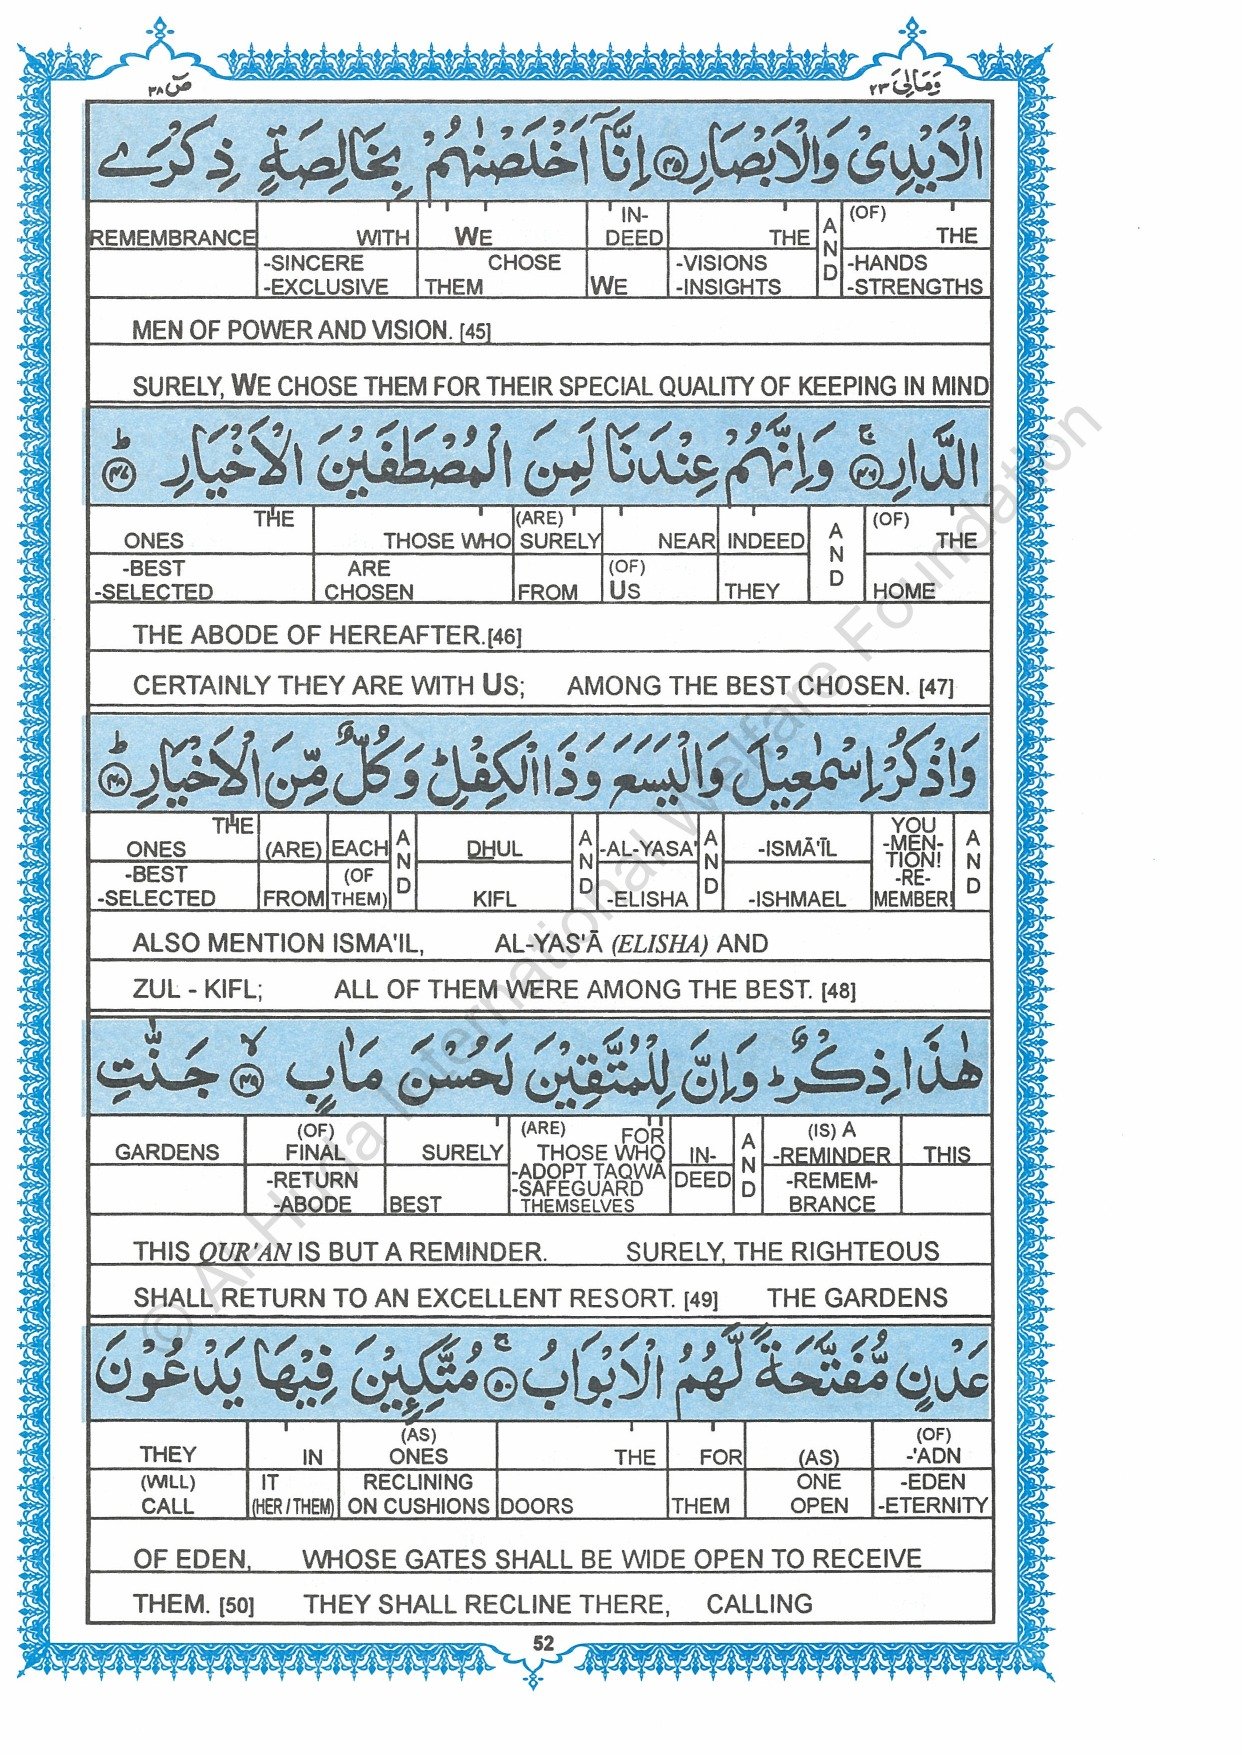 صٓ ٣٨
وَمَالِيَ ٢٣
الْاَيْدِيْ وَالْاَبْصَارِ ﴿٤٥﴾ اِنَّاۤ اَخْلَصْنٰهُمْ بِخَالِصَةٍ ذِكْرَى
REMEMBRANCE WITH WE IN- THE AND (OF) THE
-SINCERE CHOSE DEED -VISIONS -HANDS
-EXCLUSIVE THEM WE -INSIGHTS -STRENGTHS
MEN OF POWER AND VISION. [45]
SURELY, WE CHOSE THEM FOR THEIR SPECIAL QUALITY OF KEEPING IN MIND
الدَّارِ ﴿٤٦﴾ وَاِنَّهُمْ عِنْدَنَا لَمِنَ الْمُصْطَفَيْنَ الْاَخْيَارِ ﴿٤٧﴾
THE (ARE) (OF)
ONES THOSE WHO SURELY NEAR INDEED AND THE
-BEST ARE (OF)
-SELECTED CHOSEN FROM US THEY HOME
THE ABODE OF HEREAFTER.[46]
CERTAINLY THEY ARE WITH US; AMONG THE BEST CHOSEN. [47]
وَاذْكُرْ اِسْمٰعِيْلَ وَالْيَسَعَ وَذَا الْكِفْلِ وَكُلٌّ مِّنَ الْاَخْيَارِ ﴿٤٨﴾
THE YOU
ONES (ARE) EACH AND DHUL AND -AL-YASA' AND -ISMĀ'ĪL -MEN-TION! AND
-BEST (OF -RE-
-SELECTED FROM THEM) KIFL -ELISHA -ISHMAEL MEMBER!
ALSO MENTION ISMA'IL, AL-YAS'Ā (ELISHA) AND
ZUL - KIFL; ALL OF THEM WERE AMONG THE BEST. [48]
هٰذَا ذِكْرٌ وَاِنَّ لِلْمُتَّقِيْنَ لَحُسْنَ مَاٰبٍ ﴿٤٩﴾ جَنّٰتِ
(OF) (ARE) FOR (IS) A
GARDENS FINAL SURELY THOSE WHO IN- AND -REMINDER THIS
-RETURN -ADOPT TAQWĀ DEED -REMEM-
-SAFEGUARD
-ABODE BEST THEMSELVES BRANCE
THIS QUR'AN IS BUT A REMINDER. SURELY, THE RIGHTEOUS
SHALL RETURN TO AN EXCELLENT RESORT. [49] THE GARDENS
عَدْنٍ مُّفَتَّحَةً لَّهُمُ الْاَبْوَابُ ﴿٥٠﴾ مُتَّكِـِٕيْنَ فِيْهَا يَدْعُوْنَ
(AS) (OF)
THEY IN ONES THE FOR (AS) -'ADN
(WILL) IT RECLINING ONE -EDEN
CALL (HER / THEM) ON CUSHIONS DOORS THEM OPEN -ETERNITY
OF EDEN, WHOSE GATES SHALL BE WIDE OPEN TO RECEIVE
THEM. [50] THEY SHALL RECLINE THERE, CALLING
52
© Al-Huda International Welfare Foundation